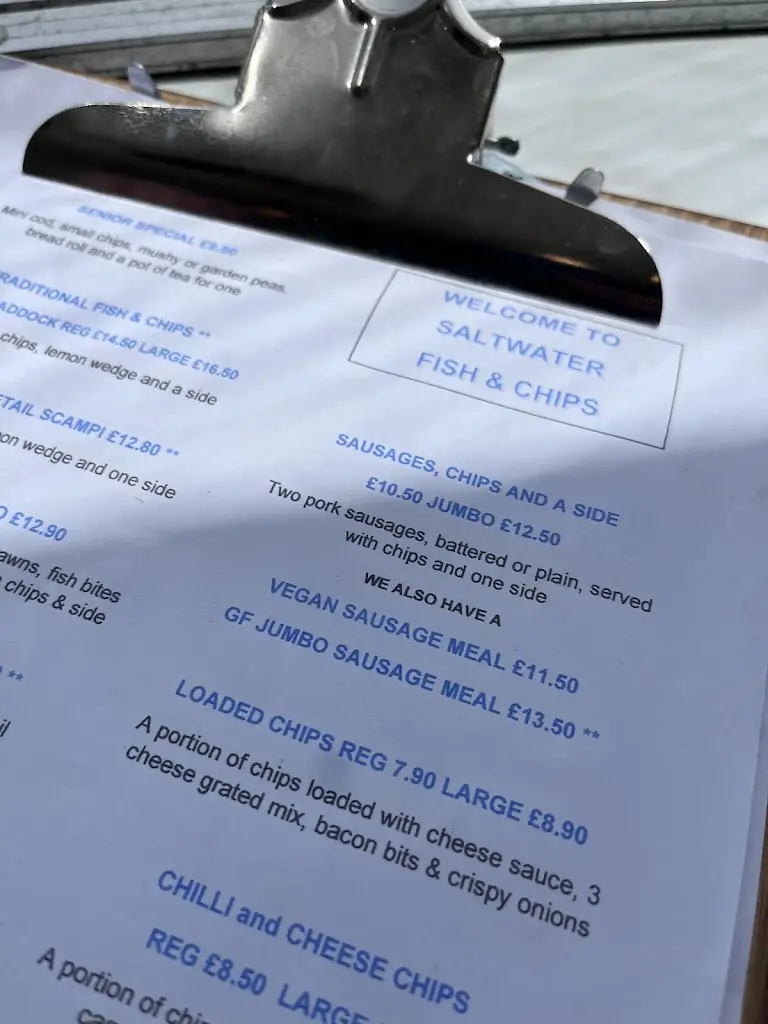 SENIOR SPECIAL £9.80
Mini cod, small chips, mushy or garden peas,
bread roll and a pot of tea for one
TRADITIONAL FISH & CHIPS **
HADDOCK REG £14.50 LARGE £16.50
chips, lemon wedge and a side
SCAMPI £12.80 **
wedge and one side
£12.90
fish bites
chips & side
**
WELCOME TO
SALTWATER
FISH & CHIPS
SAUSAGES, CHIPS AND A SIDE
£10.50 JUMBO £12.50
Two pork sausages, battered or plain, served
with chips and one side
WE ALSO HAVE A
VEGAN SAUSAGE MEAL £11.50
GF JUMBO SAUSAGE MEAL £13.50 **
LOADED CHIPS REG 7.90 LARGE £8.90
A portion of chips loaded with cheese sauce, 3
cheese grated mix, bacon bits & crispy onions
CHILLI and CHEESE CHIPS
REG £8.50 LARGE
A portion of